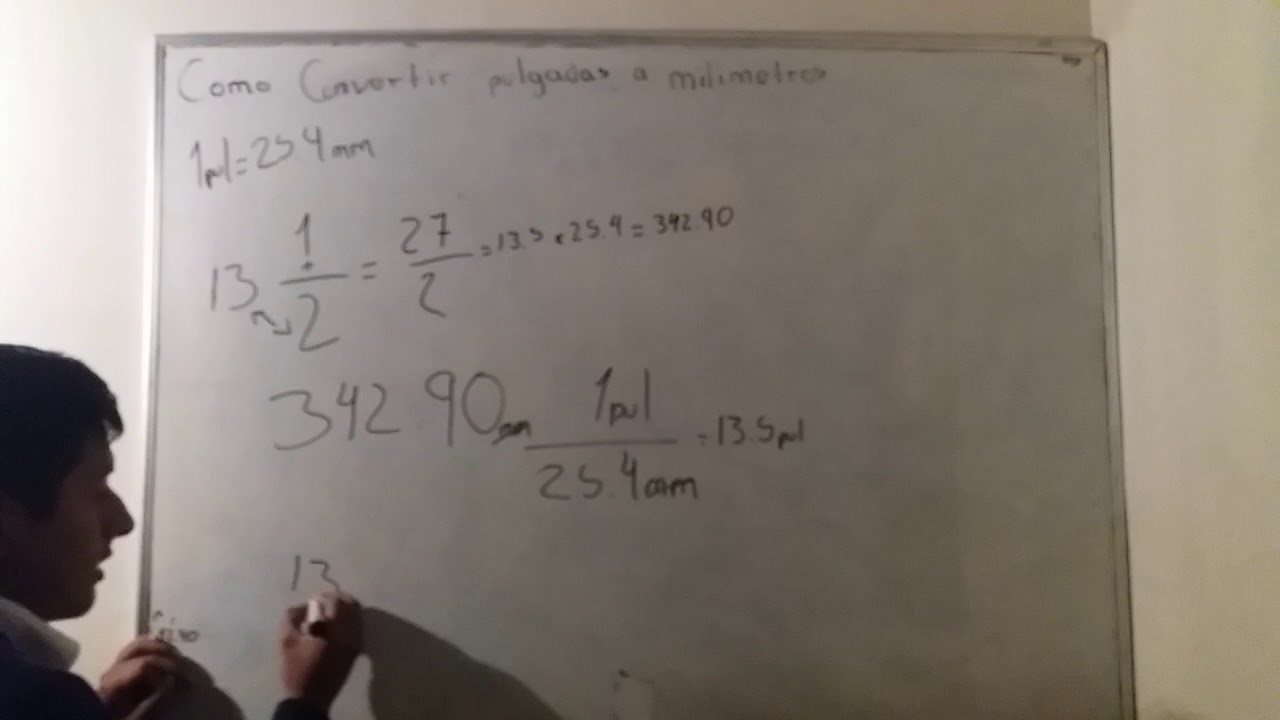 Como Convertir pulgadas a milimetros
1pul=25.4mm
13 1/2 = 27/2 = 13.5 x 25.4 = 342.90
342.90mm 1pul/25.4mm = 13.5pul
13